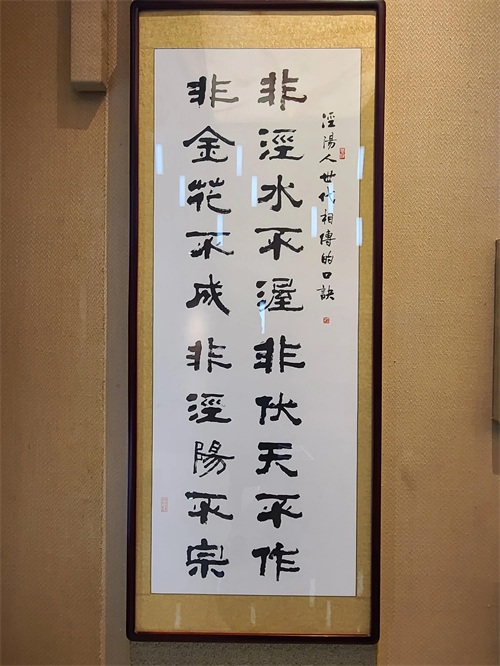 涇陽人世代相傳的口訣
非涇水不渥非伏天不作
非金花不成非涇陽不宗